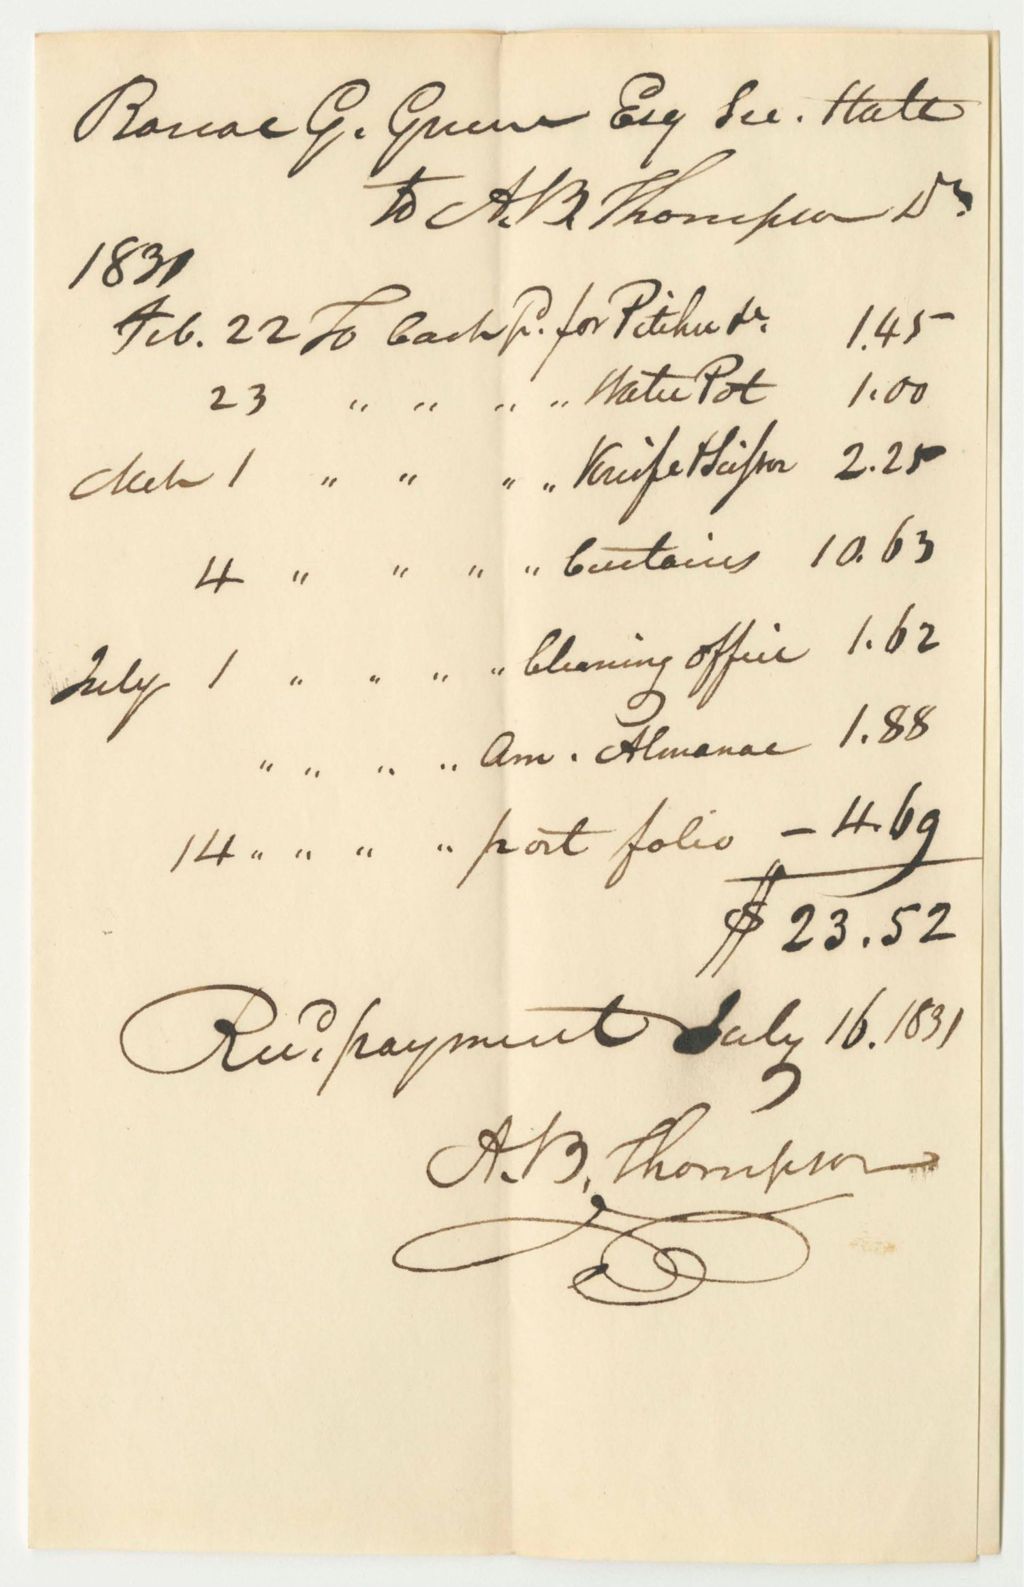 Roscoe G. Greene Esq Sec. State
to A. B. Thompson Dr
1831
Feb. 22 To Cash Pd. for Pitcher &c. 1.45
23 " " " " Water Pot 1.00
Mch 1 " " " " Knife & Scissor 2.25
4 " " " " Curtains 10.63
July 1 " " " " Cleaning office 1.62
" " " " Am. Almanac 1.88
14 " " " " port folio - 4.69
$ 23.52
Recd. payment July 16. 1831
A. B. Thompson